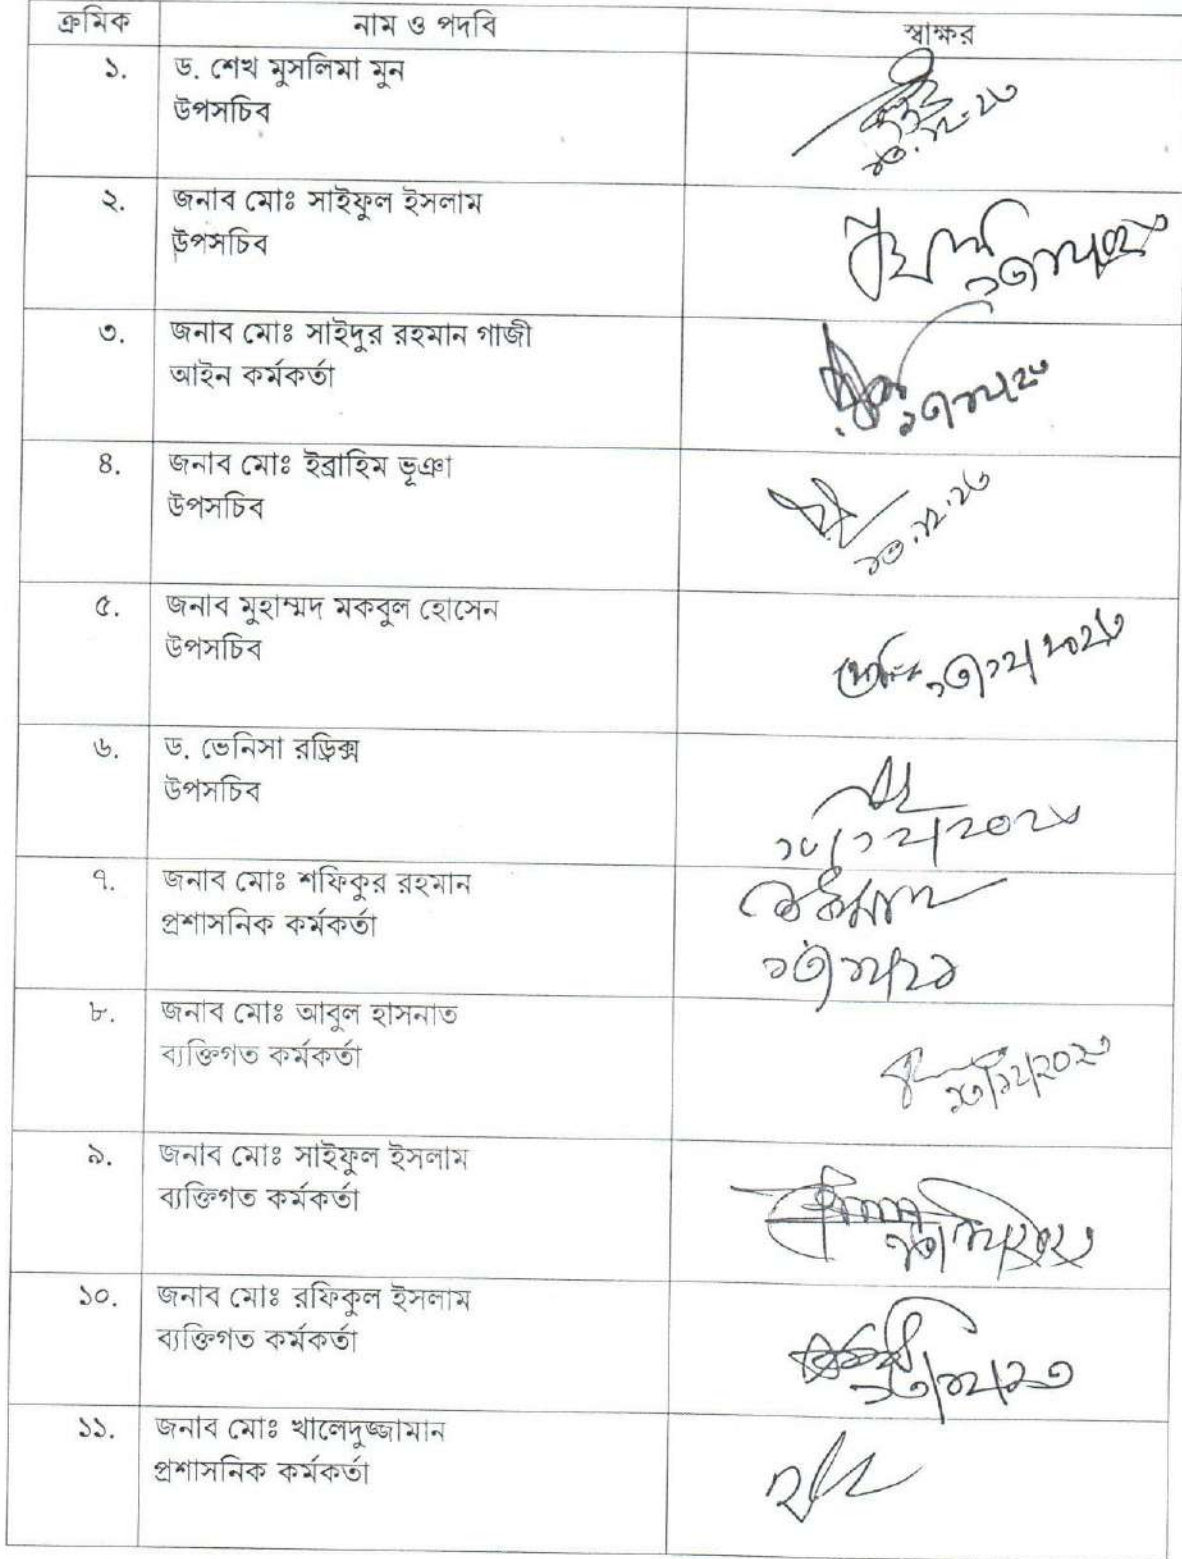 ক্রমিক নাম ও পদবি স্বাক্ষর
১. ড. শেখ মুসলিমা মুন
উপসচিব
১৩.১২.২৩
২. জনাব মোঃ সাইফুল ইসলাম
উপসচিব
৩. জনাব মোঃ সাইদুর রহমান গাজী
আইন কর্মকর্তা
১৩/১২/২৩
৪. জনাব মোঃ ইব্রাহিম ভূঞা
উপসচিব
১৩.১২.২৩
৫. জনাব মুহাম্মদ মকবুল হোসেন
উপসচিব
১৩/১২/২০২৩
৬. ড. ভেনিসা রড্রিক্স
উপসচিব
১৩/১২/২০২৩
৭. জনাব মোঃ শফিকুর রহমান
প্রশাসনিক কর্মকর্তা
৮. জনাব মোঃ আবুল হাসনাত
ব্যক্তিগত কর্মকর্তা
১৩/১২/২০২৩
৯. জনাব মোঃ সাইফুল ইসলাম
ব্যক্তিগত কর্মকর্তা
১০. জনাব মোঃ রফিকুল ইসলাম
ব্যক্তিগত কর্মকর্তা
১৩/১২/২৩
১১. জনাব মোঃ খালেদুজ্জামান
প্রশাসনিক কর্মকর্তা